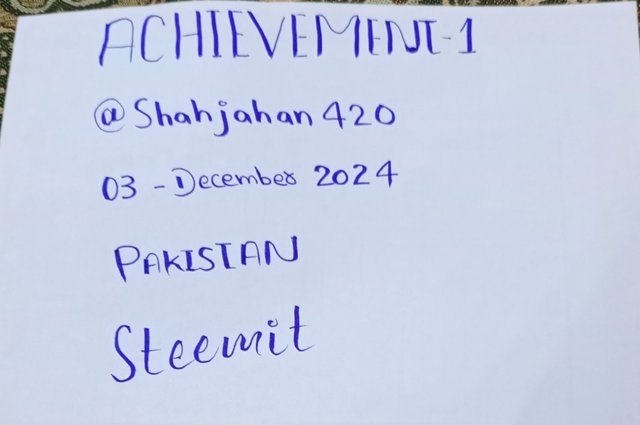 ACHIEVEMENT-1
@Shahjahan420
03 - December 2024
PAKISTAN
Steemit